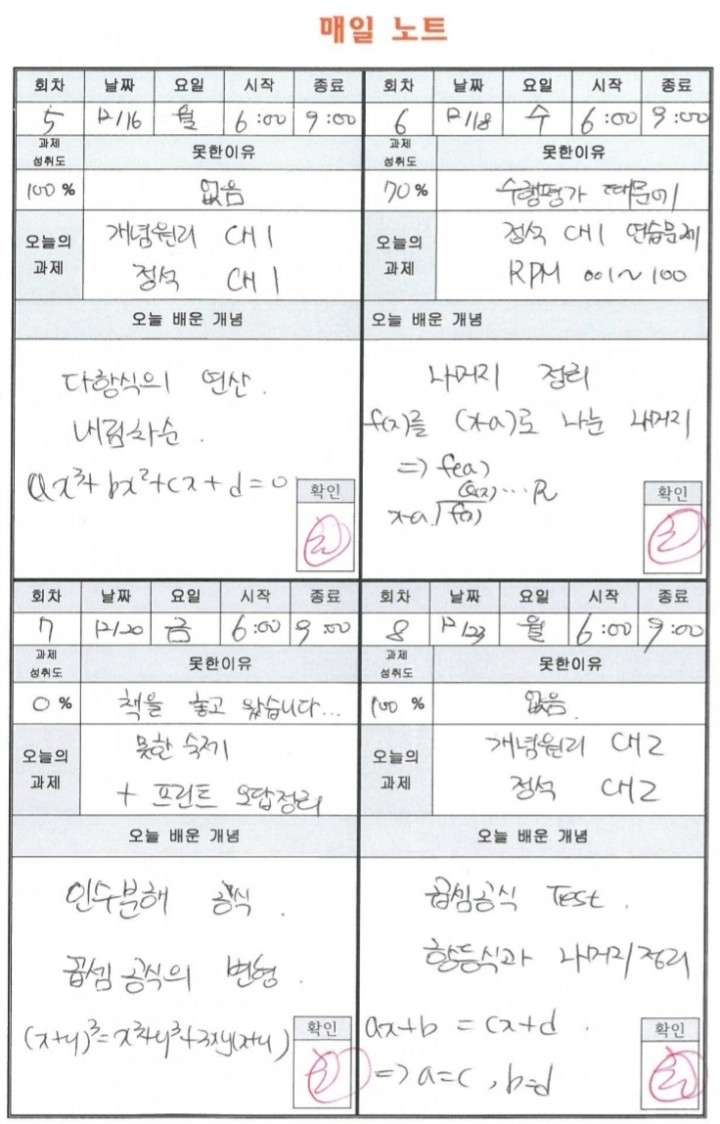 매일 노트
회차 날짜 요일 시작 종료
5 12/16 월 6:00 9:00
과제 성취도 못한이유
100 % 없음
오늘의 과제 개념원리 CH 1
정석 CH 1
오늘 배운 개념
다항식의 연산.
내림차순.
ax³+bx²+cx+d=0
확인
회차 날짜 요일 시작 종료
6 12/18 수 6:00 9:00
과제 성취도 못한이유
70 % 수행평가 때문에
오늘의 과제 정석 CH 1 연습문제
RPM 001~100
오늘 배운 개념
나머지 정리
f(x)를 (x-a)로 나눈 나머지
=> f(a)
Q(x)...R
x-a f(x)
확인
회차 날짜 요일 시작 종료
7 12/20 금 6:00 9:00
과제 성취도 못한이유
0 % 책을 놓고 왔습니다...
오늘의 과제 못한 숙제
+ 프린트 오답정리
오늘 배운 개념
인수분해 공식.
곱셈 공식의 변형.
(x+y)³=x³+y³+3xy(x+y)
확인
회차 날짜 요일 시작 종료
8 12/23 월 6:00 9:00
과제 성취도 못한이유
100 % 없음.
오늘의 과제 개념원리 CH 2
정석 CH 2
오늘 배운 개념
곱셈공식 Test.
항등식과 나머지정리
ax+b = cx+d.
=> a=c, b=d
확인